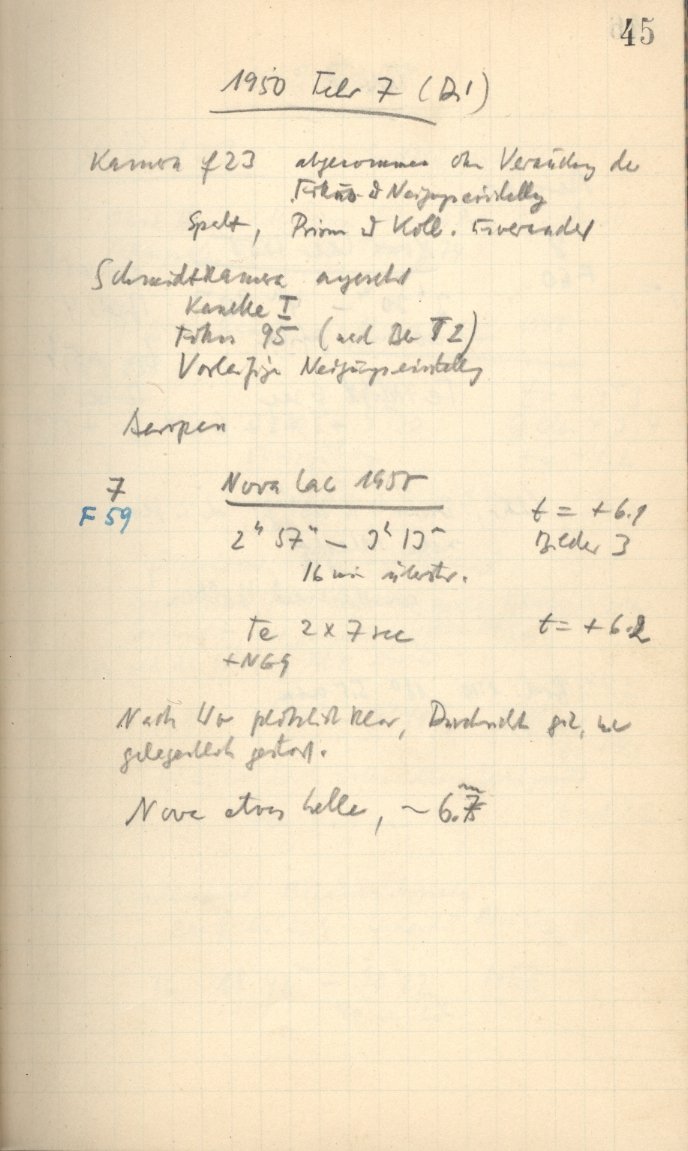 45
1950 Febr 7 (Di)
Kamera f23 abgenommen ohne Veränderung der
Fokus u Neigungseinstellg
Spalt, Prisma u Koll. unverändert
Schmidtkamera angesetzt
Kassette I
Fokus 95 (nach Be T2)
Vorläufige Neigungseinstellg
7 Nova Lac 1950 t = +6.1
F 59 2ʰ 57ᵐ – 3ʰ 13ᵐ Bilder 3
16 min
Te 2 x 7 sec t = +6.2
+NG9
Nach plötzlich klar, Durchsicht gut, nur
gelegentlich gestört.
Nova etwas heller, ~ 6.ᵐ7